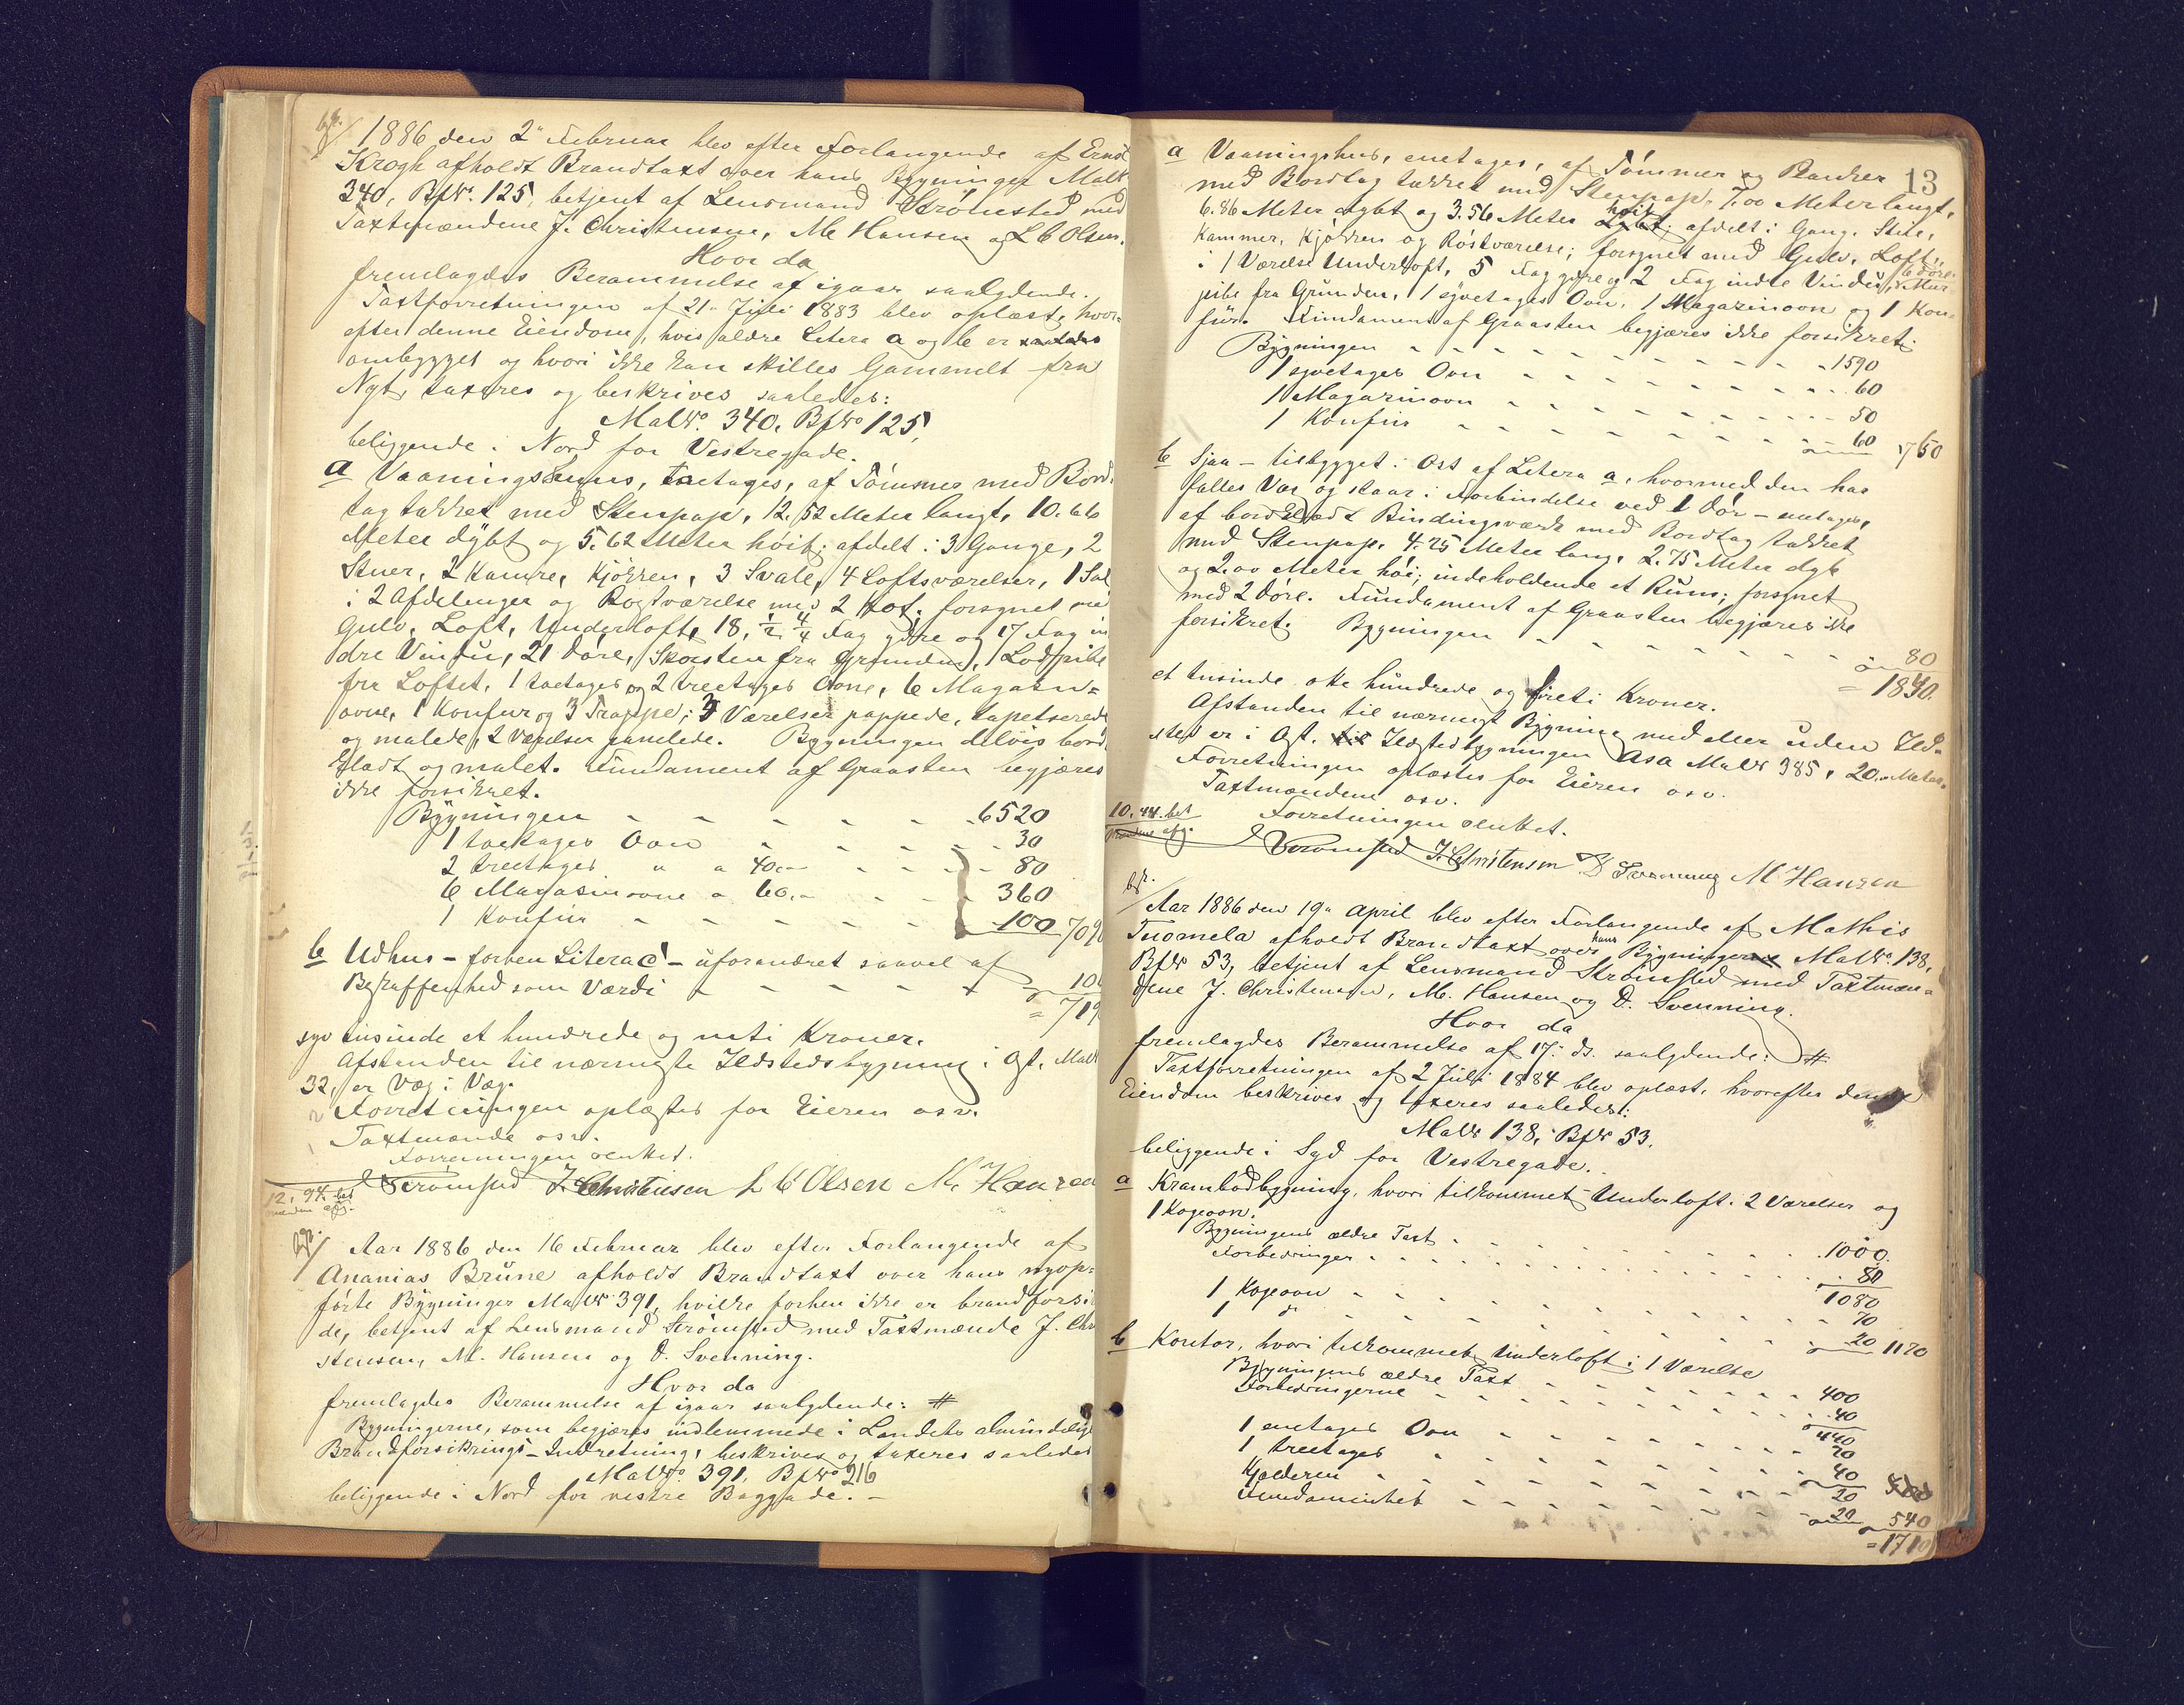 bfr.
1886 den 2" Februar blev efter Forlangende af Ernst
Krogh afholdt Brandtaxt over hans Bygninger MatN
340, BfNo. 125, betjent af Lensmand Strømsted med
Taxtmændene J. Christensen, M. Hansen og L C Olsen.
Hvor da
fremlagdes Berammelse af igaar saalydende.
Taxtforretningen af 21" Juli 1883 blev oplæst, hvor=
efter denne Eiendom, hvis ældre Litera a og b er
ombygget og hvori ikke kan skilles Gammelt fra
Nyt, taxeres og beskrives saaledes:
MatNo. 340, BfNo 125,
beliggende i Nord for Vestregade.
a Vaaningshuus, toetages, af Tømmer med Bord-
tag tækket med Stenpap, 12.52 Meter langt, 10.66
Meter dybt og 5.62 Meter høit; afdelt i 3 Gange, 2
Stuer, 2 Kamre, Kjøkken, 3 Svale, 4 Loftsværelser, 1 Sal
i 2 Afdelinger og Røgtværelse med 2 Kot; forsynet med
Gulv, Loft, Underloft, 18, 1/2 4/4 Fag ydre og 17 Fag in
dre Vindu, 21 Døre, Skorsten fra Grunden, 1 Lodpibe
fra Loftet, 1 toetages og 2 treetages Ovne, 6 Magasin=
ovne, 1 Konfur og 3 Trappe; 3 Værelser pappede, tapetserede
og malede, 2 Værelser panelede. Bygningen delvis bord
klædt og malet. Fundament af Graasten begjæres
ikke forsikret.
Bygningen - - - - - 6520
1 toetages Ovn - - - - - 30
2 treetages " a 40.- - - - 80
6 Magasinovne a 60.- - - - 360
1 Konfur - - - - - 100 709
b Udhus - forhen Litera c - uforandret saavel af
Beskaffenhed som Værdi - - - - - 10
= 719
syv tusinde et hundrede og niti Kroner.
Afstanden til nærmeste Ildstedsbygning i Øst, Mat
32, er Væg i Væg.
Forretningen oplæstes for Eieren osv.
Taxtmænde osv.
Forretningen sluttet.
Strømsted J. Christensen L C Olsen M. Hansen
12.94 bet
bfr.
Aar 1886 den 16 Februar blev efter Forlangende af
Ananias Brune afholdt Brandtaxt over hans nyop=
førte Bygninger MatNr 391, hvilke forhen ikke er brandforsi
de, betjent af Lensmand Strømsted med Taxtmænde J. Chr
stensen, M. Hansen og D. Svenning.
Hvor da
fremlagdes Berammelse af igaar saalydende: #
Bygningerne, som begjæres indlemmede i Landets almindelige
Brandforsikrings-Indretning, beskrives og taxeres saaledes
MatNo. 391, BfNo 216
beliggende i Nord for vestre Baggade. -
13
a Vaaningshus, enetages, af Tømmer og Planker
med Bordtag tækket med Stenpap, 7.00 Meter langt,
6.86 Meter dybt og 3.56 Meter høit; afdelt i Gang, Stue,
Kammer, Kjøkken og Røstværelse; forsynet med Gulv, Loft,
i 1 Værelse Underloft, 5 Fag ydre og 2 Fag indre Vindu, 6 Døre, Mur=
pibe fra Grunden, 1 syvetages Ovn, 1 Magazinovn og 1 Kon=
fur. Fundament af Graasten begjæres ikke forsikret.
Bygningen - - - - - 1590
1 syvetages Ovn - - - - - 60
1 Magazinovn - - - - - 50
1 Konfur - - - - - 60 1760
b Sjaa - tilbygget i Øst af Litera a, hvormed den har
fælles Væg og staar i Forbindelse ved 1 Dør - enetages,
af bordklædt Bindingsværk med Bordtag tækket
med Stenpap, 4.75 Meter lang, 2.75 Meter dyb
og 2.00 Meter høi; indeholdende et Rum; forsynet
med 2 Døre. Fundament af Graasten begjæres ikke
forsikret. Bygningen - - - - - 80
= 1840.
et tusinde otte hundrede og fireti Kroner.
Afstanden til nærmest Bygning med eller uden Ild-
sted er i Øst. til Ildstedbygningen Asa MatNr 385, 20.- Meter.
Forretningen oplæstes for Eieren osv.
Taxtmændene osv.
Forretningen sluttet.
10.44 bet
Strømsted J. Christensen D Svenning M Hansen
bfr.
Aar 1886 den 19" April blev efter Forlangende af Mathis
Tuomela afholdt Brandtaxt over hans Bygninger MatNo. 138,
BfNr 53, betjent af Lensmand Strømsted med Taxtmæn=
dene J. Christensen, M. Hansen og D. Svenning.
Hvor da
fremlagdes Berammelse af 17" ds. saalydende: #
Taxtforretningen af 2 Juli 1884 blev oplæst, hvorefter denne
Eiendom beskrives og taxeres saaledes:
MatNr 138, BfNr 53.
beliggende i Syd for Vestregade.
a Krambodbygning, hvori tilkommet Underloft i 2 Værelser og
1 Kogeovn.
Bygningens ældre Taxt - - - - - 1000.
Forbedringer - - - - - 80
1080
1 Kogeovn - - - - - 70
1 do - - - - - 20 1170
b Kontor, hvori tilkommet Underloft i 1 Værelse
Bygningens ældre Taxt - - - - - 400
Forbedringerne - - - - - 40
440
1 enetages Ovn - - - - - 20
1 treetages " - - - - - 40
Kjelderen - - - - - 20
Fundamentet - - - - - 20 540
= 1710